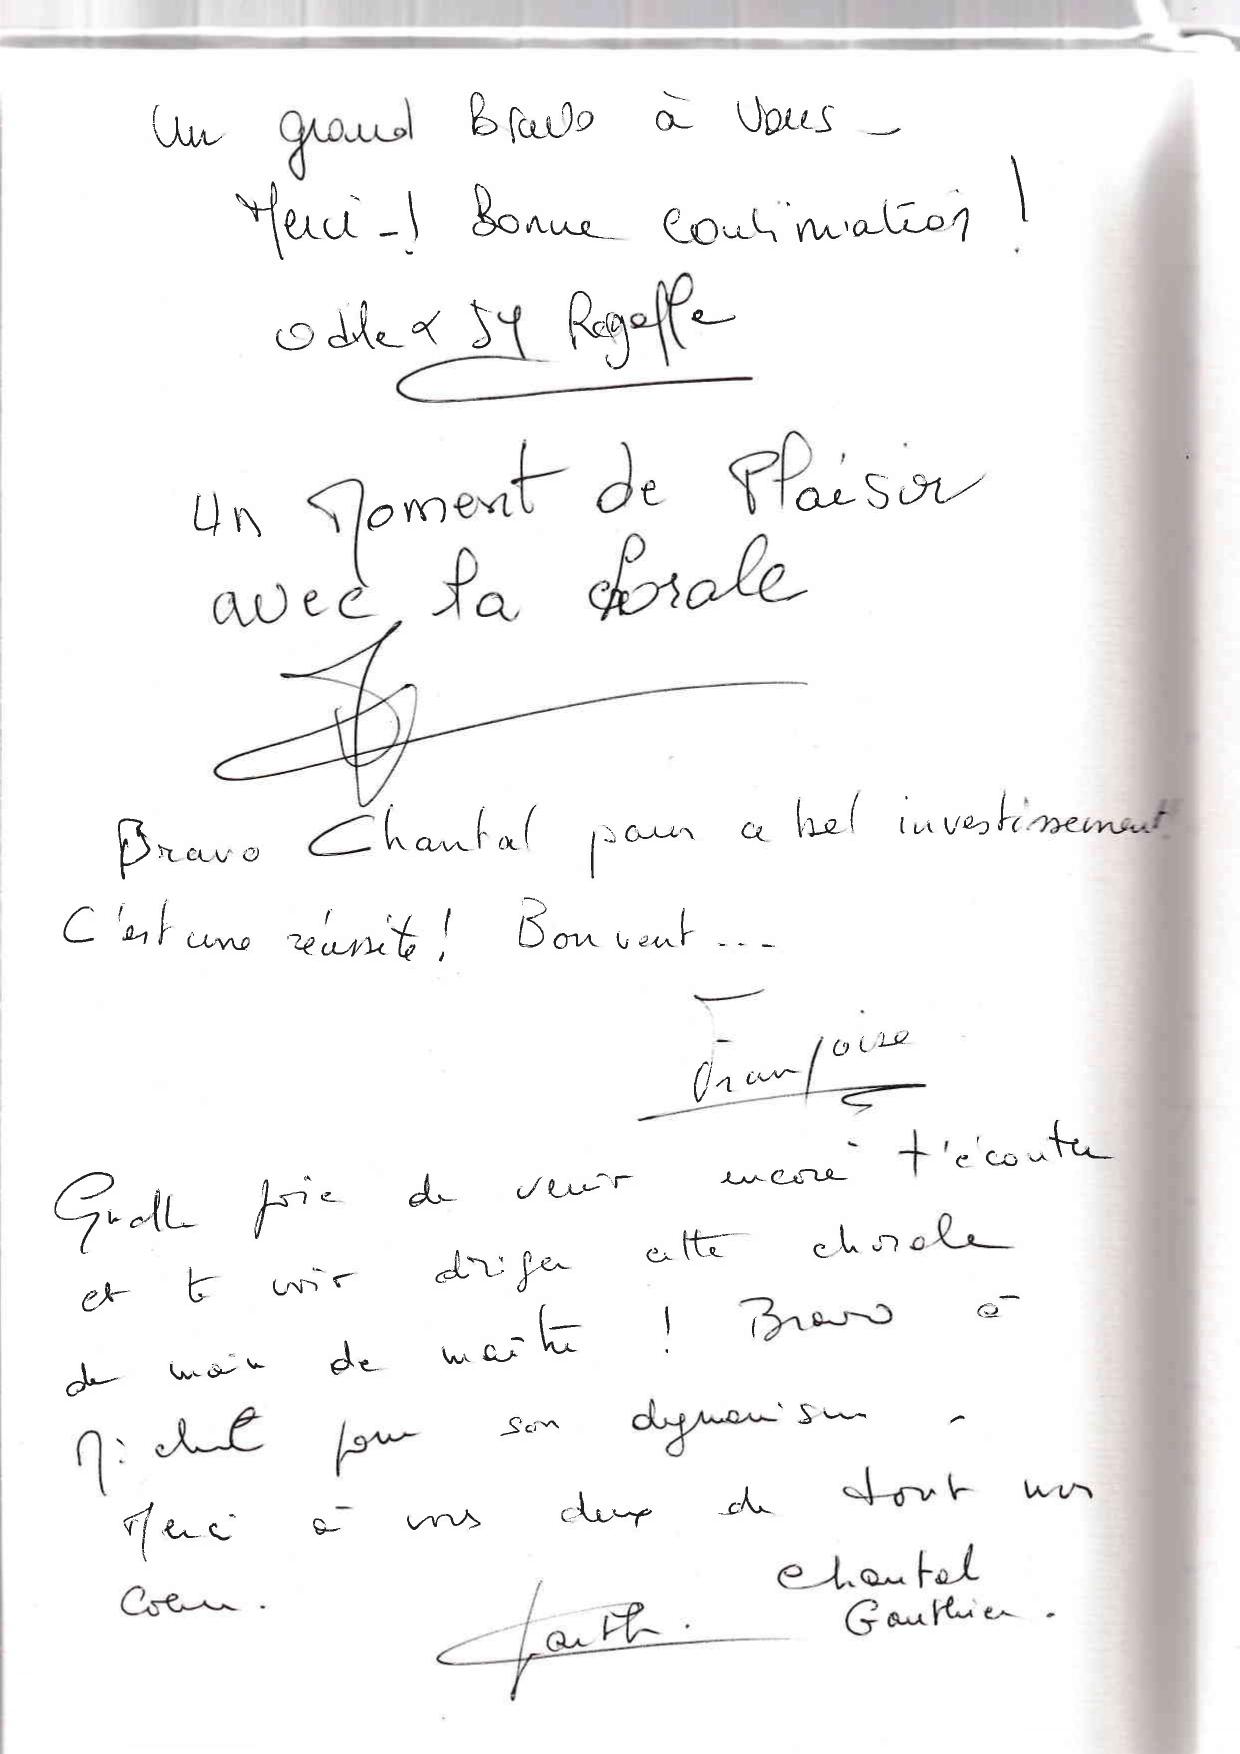 Un grand Bravo à Vous -
Merci - ! Bonne continuation !
Odile & JY Rageffe
Un Moment de Plaisir
avec la chorale
Bravo Chantal pour ce bel investissement
C'est une réussite ! Bon vent ...
Françoise
Quelle joie de venir encore t'écouter
et te voir diriger cette chorale
de main de maître ! Bravo à
Michel pour son dynamisme -
Merci à vous deux de tout mon
Coeur.
Chantal
Gauthier.